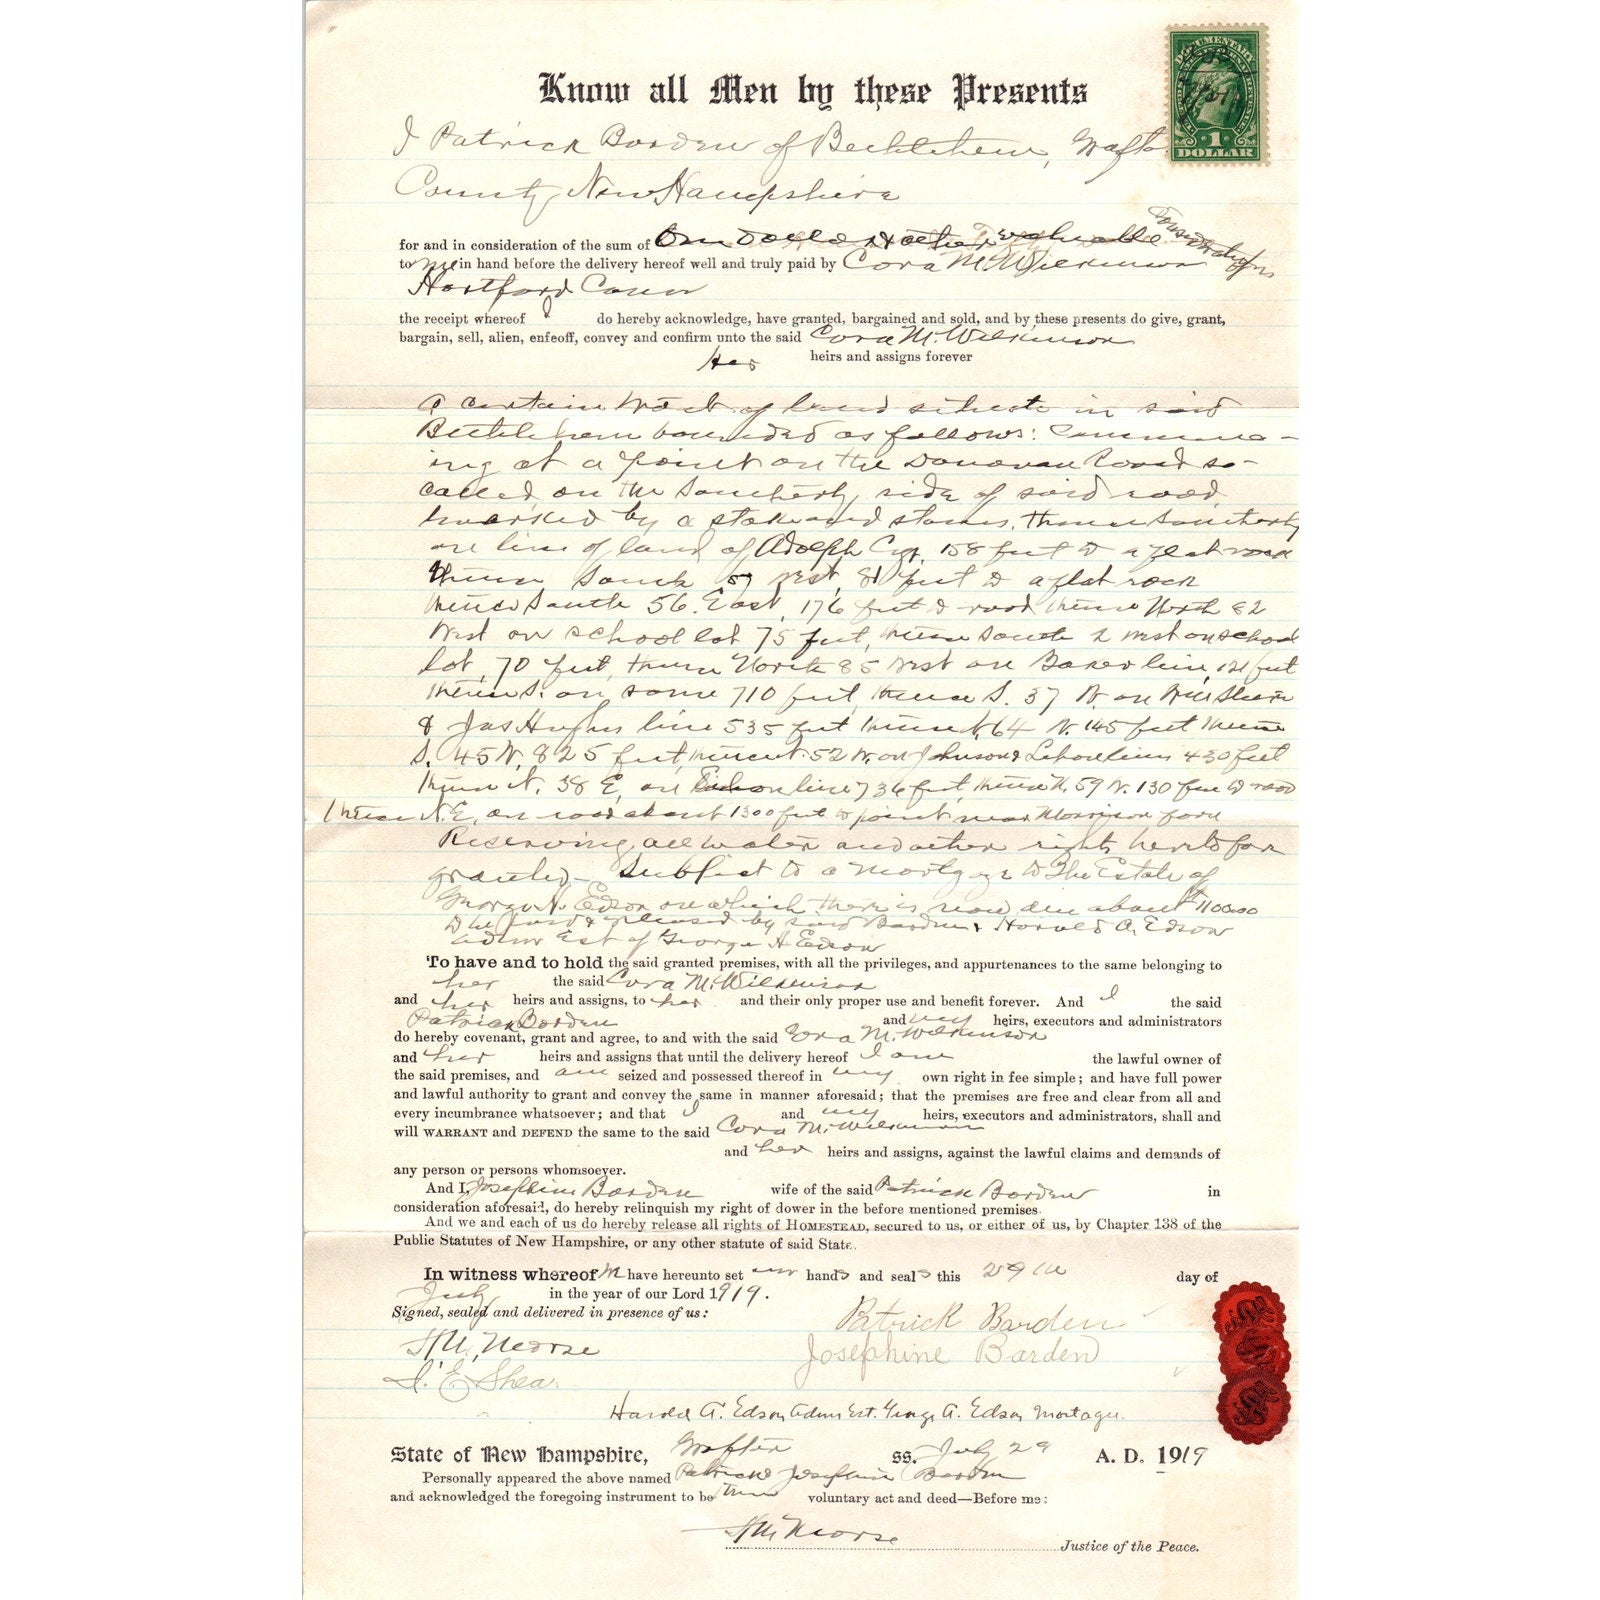 Know all Men by these Presents
DOCUMENTARY
1
DOLLAR
I Patrick Borden of Bethlehem, Grafto
County New Hampshire
for and in consideration of the sum of One Dollar & other valuable Considerations
to me in hand before the delivery hereof well and truly paid by Cora M. Wilkinson
Hartford Conn
the receipt whereof I do hereby acknowledge, have granted, bargained and sold, and by these presents do give, grant,
bargain, sell, alien, enfeoff, convey and confirm unto the said Cora M. Wilkinson
Her heirs and assigns forever
a certain tract of land situate in said
Bethlehem bounded as follows: Commenc-
ing at a point on the Donovan Road so-
called, on the Southerly side of said road
marked by a stake and stones, thence Southerly
on line of land of Adolph 158 feet to a flat rock
thence South 57 West, 81 feet to a flat rock
thence South 56 East, 176 feet to road thence North 82
West on school lot 75 feet, thence South 2 West on school
lot, 70 feet, thence North 85 West on Baker line, 121 feet
thence S. on same 710 feet, thence S. 37 W. on Shea
& Jas Hughes line 535 feet thence N. 64 W. 145 feet thence
S. 45 W. 825 feet, thence N. 52 W. on Johnson & line 430 feet
thence N. 38 E, on line 736 feet, thence N. 59 W. 130 feet to road
thence N.E, on road about 1300 feet to point near Morrison
Reserving all water and other rights heretofor
granted - Subject to a mortgage to The Estate of
George A. Edson on which there is now due about $1100.00
to be paid & released by said Barden & Harold A. Edson
admr Est of George A Edson
To have and to hold the said granted premises, with all the privileges, and appurtenances to the same belonging to
her the said Cora M. Wilkinson
and her heirs and assigns, to her and their only proper use and benefit forever. And I the said
Patrick Borden and my heirs, executors and administrators
do hereby covenant, grant and agree, to and with the said Cora M. Wilkinson
and her heirs and assigns that until the delivery hereof I am the lawful owner of
the said premises, and am seized and possessed thereof in my own right in fee simple; and have full power
and lawful authority to grant and convey the same in manner aforesaid; that the premises are free and clear from all and
every incumbrance whatsoever; and that I and my heirs, executors and administrators, shall and
will WARRANT and DEFEND the same to the said Cora M. Wilkinson
and her heirs and assigns, against the lawful claims and demands of
any person or persons whomsoever.
And I, Josephine Borden wife of the said Patrick Borden in
consideration aforesaid, do hereby relinquish my right of dower in the before mentioned premises.
And we and each of us do hereby release all rights of HOMESTEAD, secured to us, or either of us, by Chapter 138 of the
Public Statutes of New Hampshire, or any other statute of said State.
In witness whereof we have hereunto set our hands and seals this 29th day of
July in the year of our Lord 1919.
Signed, sealed and delivered in presence of us:
Patrick Barden
H.M. Morse
Josephine Barden
I. E. Shea
Harold A. Edson Admr Est. George A. Edson Mortagee.
State of New Hampshire, Grafton ss. July 29 A. D. 1919
Personally appeared the above named Patrick & Josephine Borden
and acknowledged the foregoing instrument to be their voluntary act and deed—Before me:
H M Morse
Justice of the Peace.